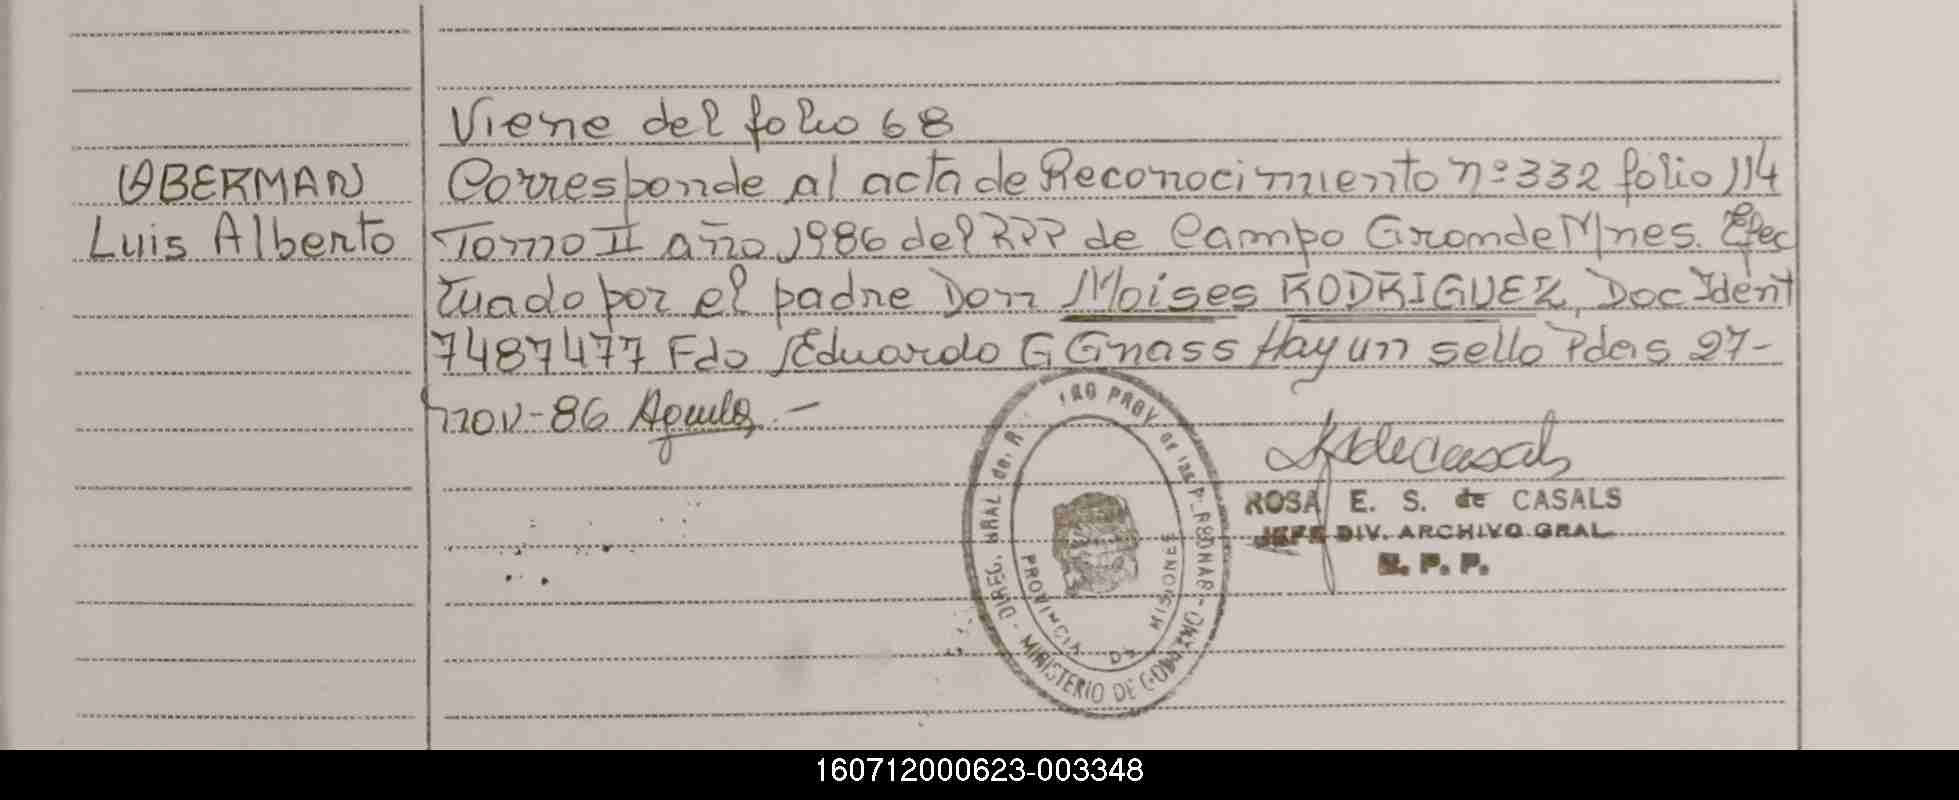 Viene del folio 68
OBERMAN
Corresponde al acta de Reconocimiento nº 332 folio 114
Luis Alberto
Tomo II año 1986 del RPP de Campo Grande Mnes. Efec
tuado por el padre Don Moises RODRIGUEZ, Doc Ident
7487477 Fdo Eduardo G Gnass Hay un sello Pdas 27-
nov-86
ROSA E. S. de CASALS
JEFE DIV. ARCHIVO GRAL.
R. P. P.
DIREC. GRAL de
PROV. de las
MINISTERIO DE GOBIERNO
PROVINCIA DE MISIONES
160712000623-003348